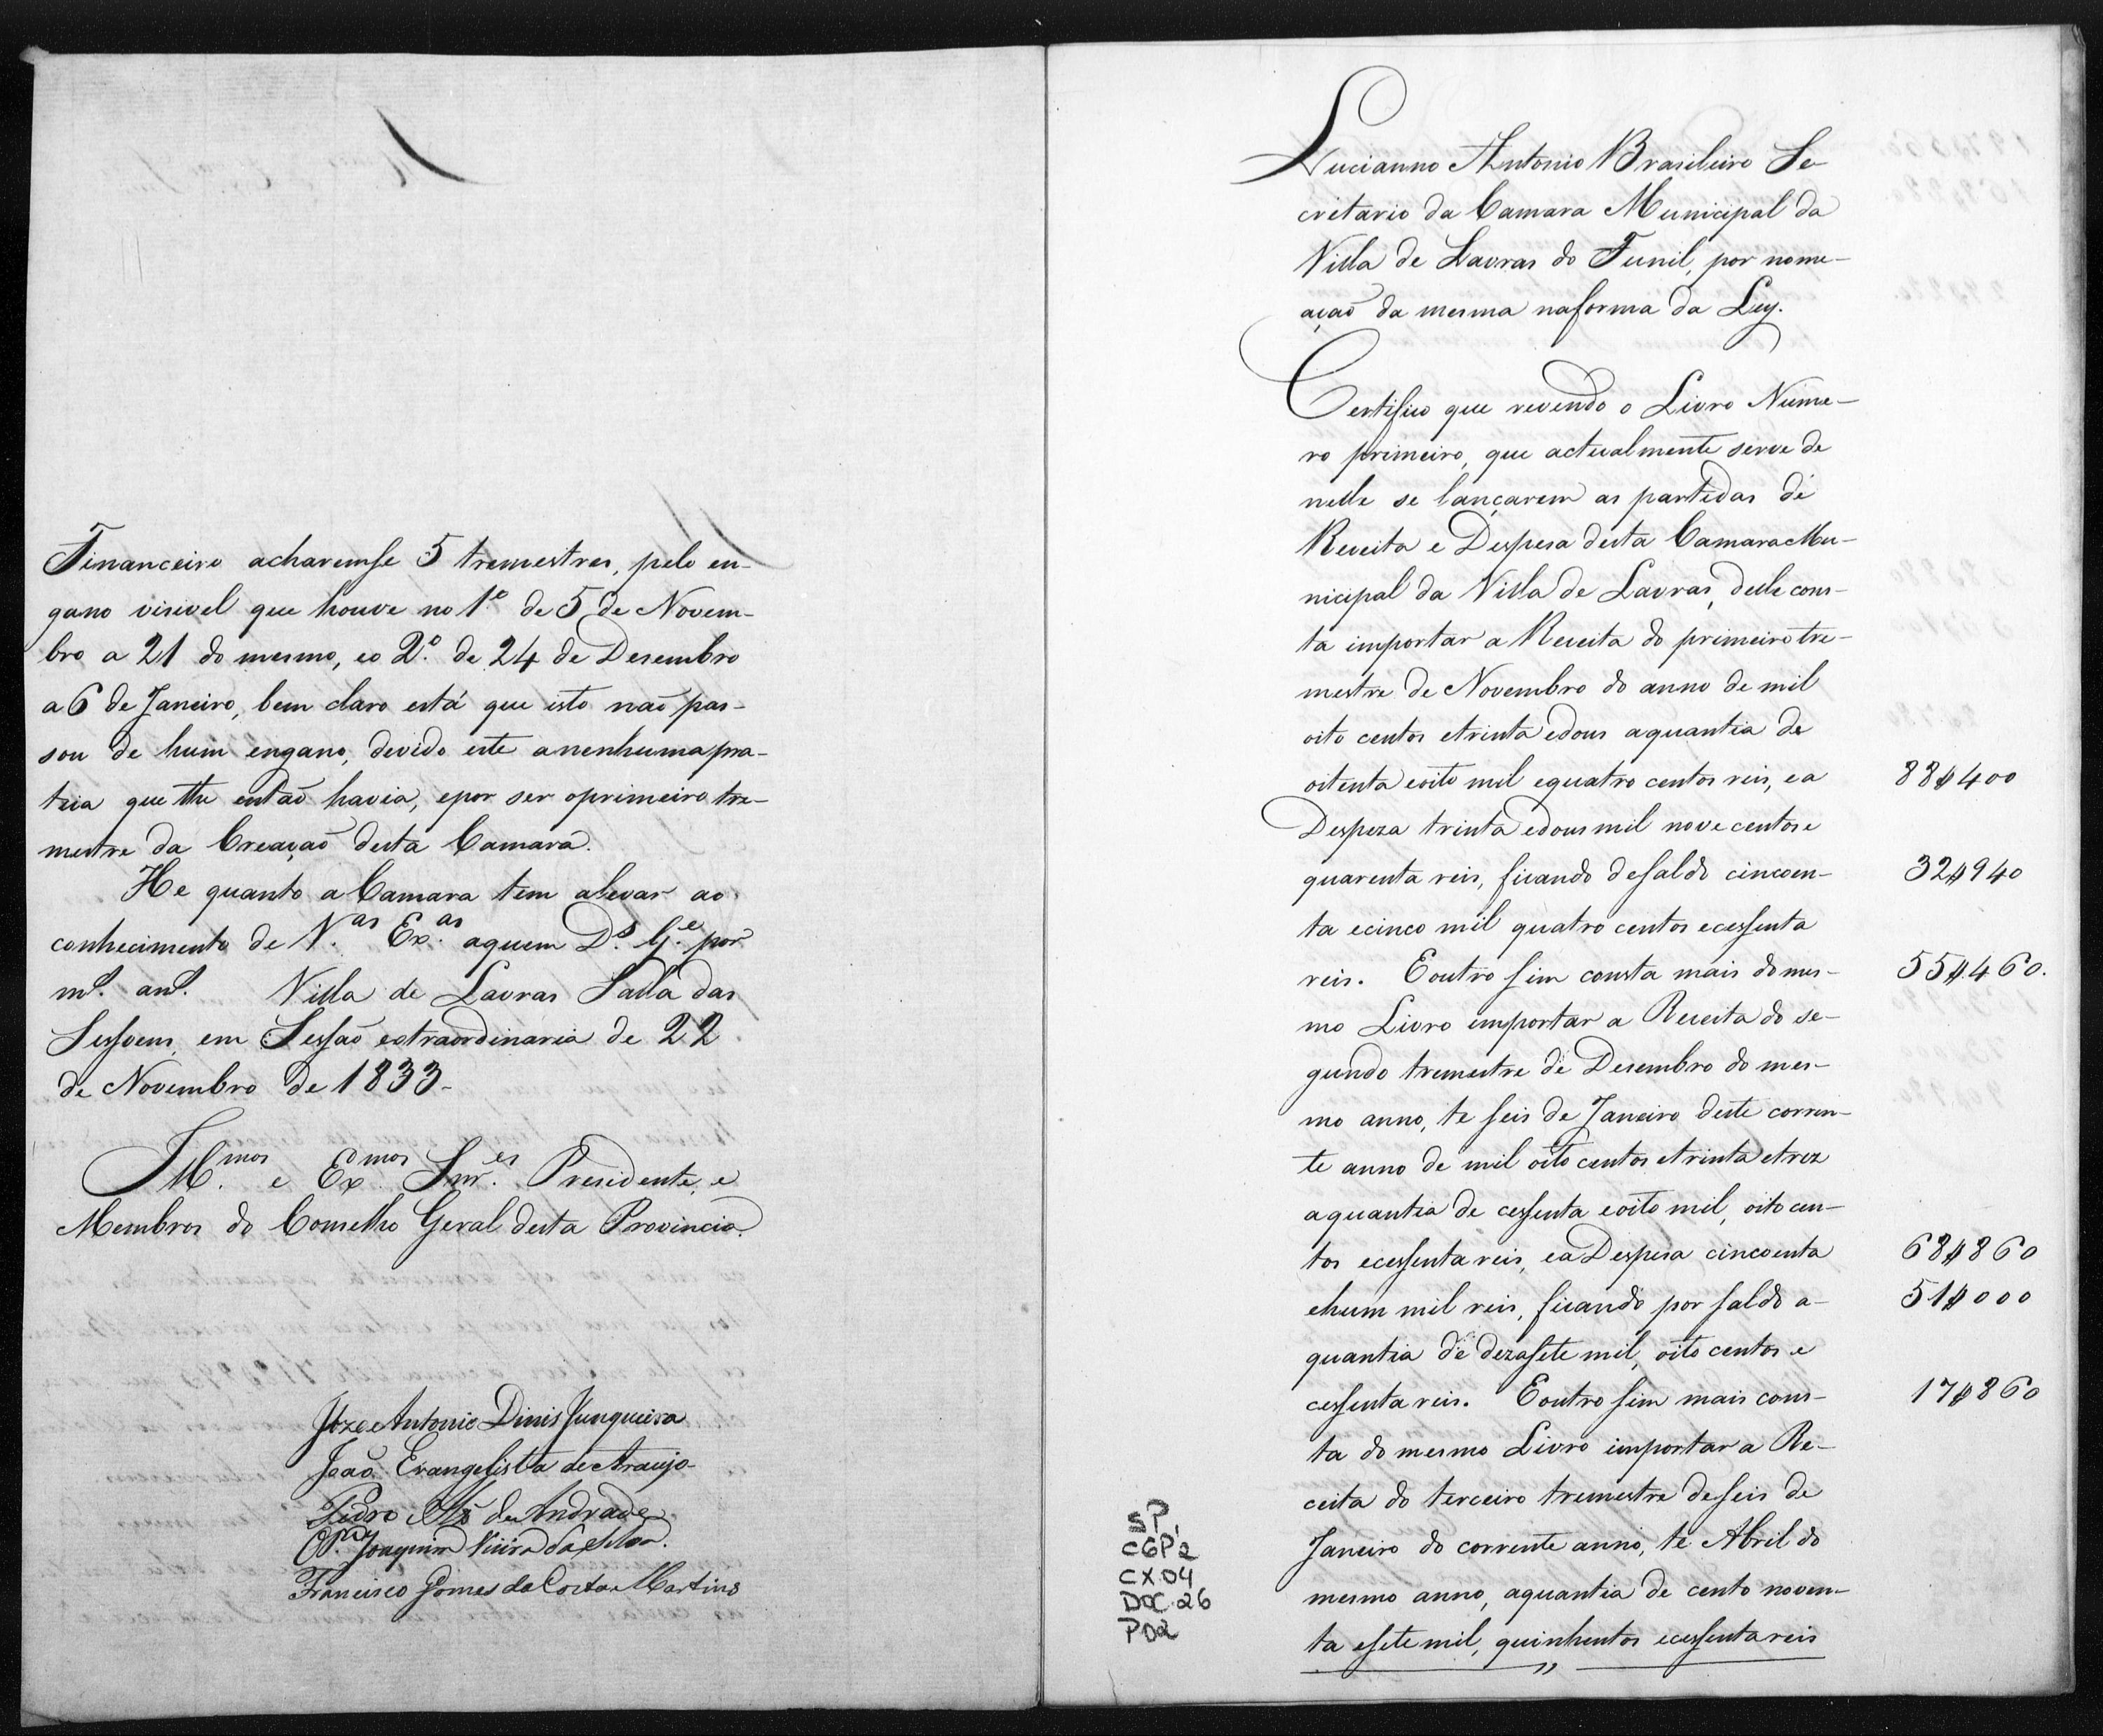 Financeiro acharemse 5 tremestres, pelo en-
gano visivel que houve no 1.º de 5 de Novem-
bro a 21 do mesmo, eo 2.º de 24 de Desembro
a 6 de Janeiro, bem claro está que isto naõ pas-
sou de hum engano, devido este anenhumapra-
tica que the entaõ havia, epor ser oprimeiro tre-
mestre da Creaçaõ desta Camara.
He quanto a Camara tem alevar ao
conhecimento de V.as Ex.as aquem D.s G.e por
m.s an.s Villa de Lavras Salla das
Sessoens, em Sessaõ extraordinaria de 22
de Novembro de 1833-
Ill.mos e Ex.mos Snr.es Presidente, e
Membros do Conselho Geral desta Provincia.
Joze Antonio Dinis Junqueira
Joaõ Evangelista de Araujo
Pedro Alz de Andrade
O P.e Joaquim Vieira da Silva.
Francisco Gomes da Costa e Martins
Lucianno Antonio Brasileiro Se-
cretario da Camara Municipal da
Villa de Lavras do Funil, por nome-
açaõ da mesma naforma da Ley.
Certifico que revendo o Livro Nume-
ro primeiro, que actualmente serve de
nelle se lançarem as partidas de
Receita e Despesa desta Camara Mu-
nicipal da Villa de Lavras, delle cons-
ta importar a Receita do primeiro tre-
mestre de Novembro do anno de mil
oito centos etrinta edous aquantia de
oitenta eoito mil equatro centos reis, ea 88$400
Despeza trinta edous mil nove centos e
quarenta reis, ficando desaldo cincoen- 32$940
ta ecinco mil quatro centos ecessenta
reis. Eoutro sim consta mais domes- 55$460.
mo Livro importar a Receita do se-
gundo tremestre de Desembro do mes-
mo anno, te seis de Janeiro deste corren-
te anno de mil oito centos etrinta etrez
aquantia de cessenta eoito mil, oito cen-
tos ecessenta reis, ea Despesa cincoenta 68$860
ehum mil reis, ficando por saldo a- 51$000
quantia de dezasete mil, oito centos e
cessenta reis. Eoutro sim mais cons- 17$860
ta do mesmo Livro importar a Re-
ceita do terceiro tremestre deseis de
Janeiro do corrente anno, te Abril do
mesmo anno, aquantia de cento noven-
ta esete mil, quinhentos ecessenta reis
SP,
CGP2
CX.04
DOC.26
P02